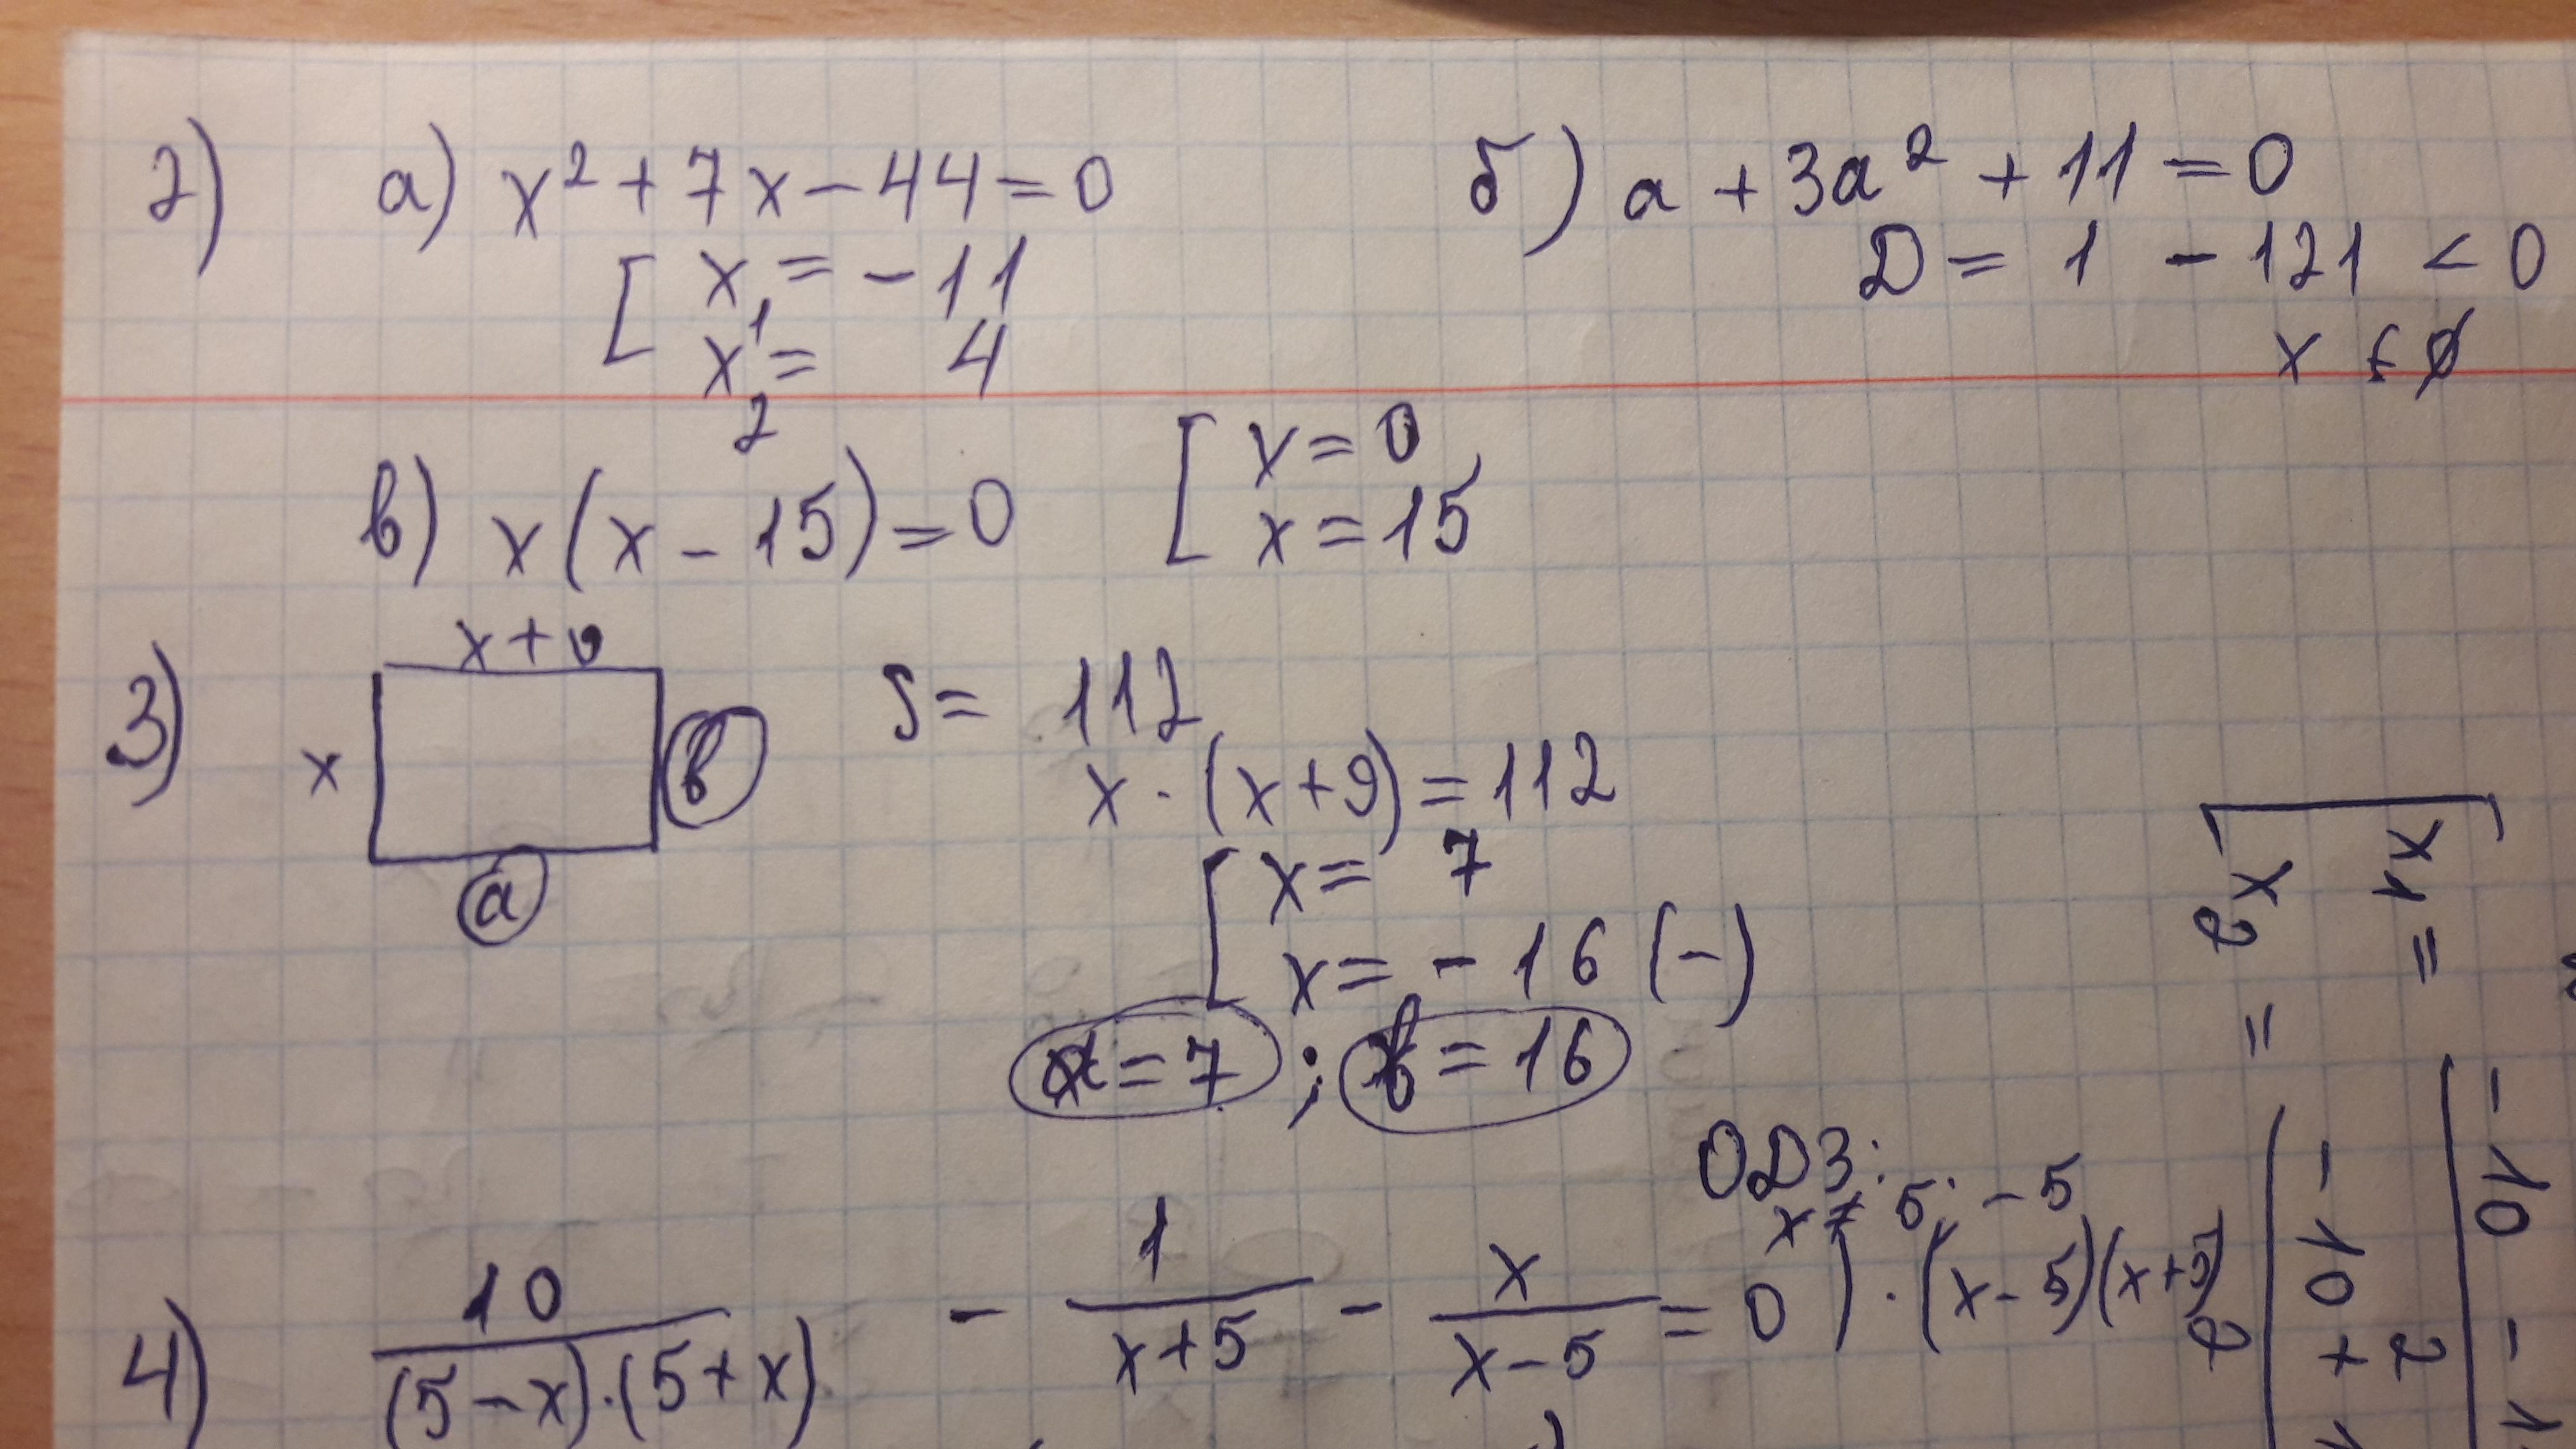 2) а) x² + 7x - 44 = 0
[ x₁ = -11
x₂ = 4
б) a + 3a² + 11 = 0
D = 1 - 121 < 0
x ∈ ∅
в) x(x - 15) = 0
[ x = 0
x = 15
3) x
a
S = 112
x · (x + 9) = 112
[ x = 7
x = -16 (-)
a = 7 ; b = 16
ОДЗ:
x ≠ 5; -5
4) 10/((5-x)·(5+x)) - 1/(x+5) - x/(x-5) = 0 ) · (x-5)(x+5)
x₁ = -10 -
2
x₂ = -10 +
2